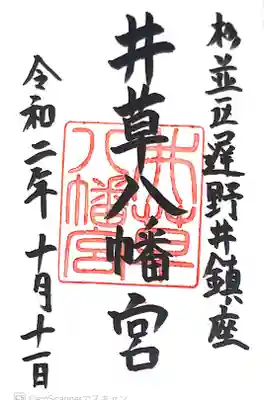 杉並区遅野井鎮座
井草八幡宮
井草
八幡宮
令和二年 十月十一日
CamScannerでスキャン